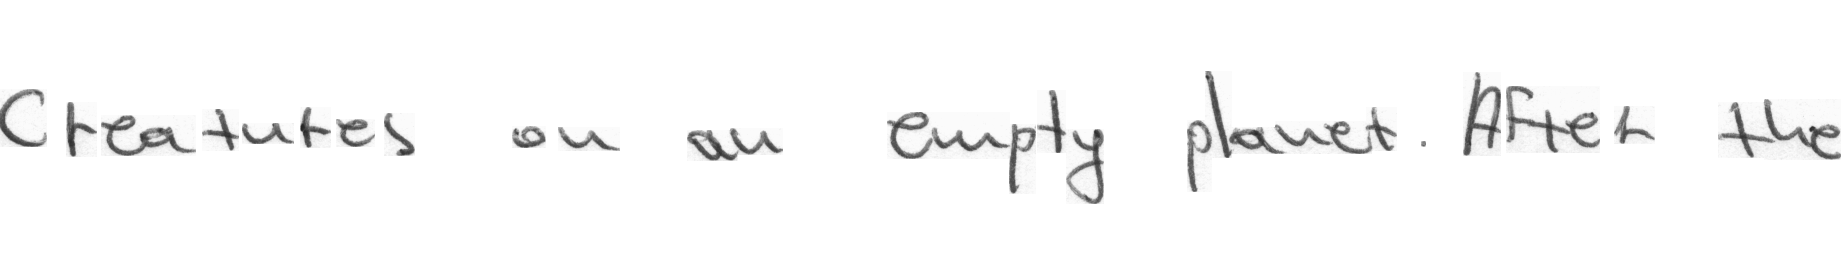 Creatures on an empty planet. After the